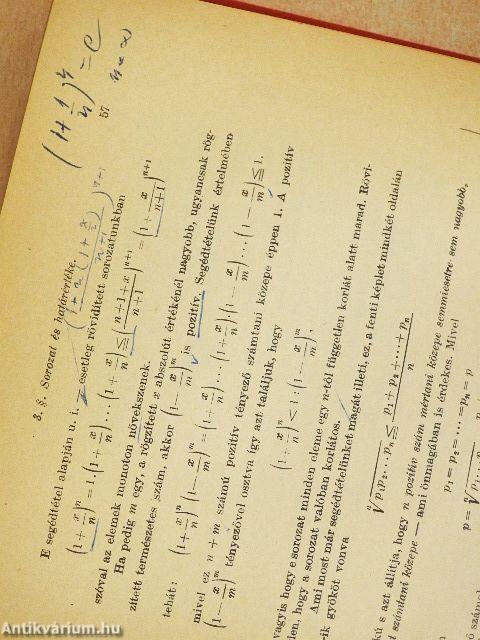 (1+1/n)^n = e
n = ∞
57
3. §. Sorozat és határértéke.
E segédtétel alapján u. i. esetleg rövidített sorozatunkban
(1+x/n)^n = 1.(1+x/n)...(1+x/n) ≦ ((n+1+x)/(n+1))^(n+1) = (1+x/(n+1))^(n+1)
szóval az elemek monoton növekszenek.
Ha pedig m egy, a rögzített x abszolút értékénél nagyobb, ugyancsak rög-
zített természetes szám, akkor (1−x/m)^m is pozitív. Segédtételünk értelmében
tehát: (1+x/n)^n (1−x/m)^m = (1+x/n)...(1+x/n)(1−x/m)...(1−x/m) ≦ 1.
mivel ez n + m számú pozitív tényező számtani közepe éppen 1. A pozitív
(1−x/m)^m tényezővel osztva így azt találjuk, hogy
(1+x/n)^n < 1 : (1−x/m)^m,
vagyis hogy e sorozat minden eleme egy n-től független korlát alatt marad. Rövi-
den, hogy a sorozat valóban korlátos.
Ami most már segédtételünket magát illeti, ez, a fenti képlet mindkét oldalán
ik gyököt vonva
ⁿ√(p₁p₂...pₙ) ≦ (p₁+p₂+...+pₙ)/n
s azt állítja, hogy n pozitív szám mértani közepe semmiesetre sem nagyobb,
számtani közepe — ami önmagában is érdekes. Mivel
p₁ = p₂ = ... = pₙ = p
p = ⁿ√
ő számai
Antikvárium.hu